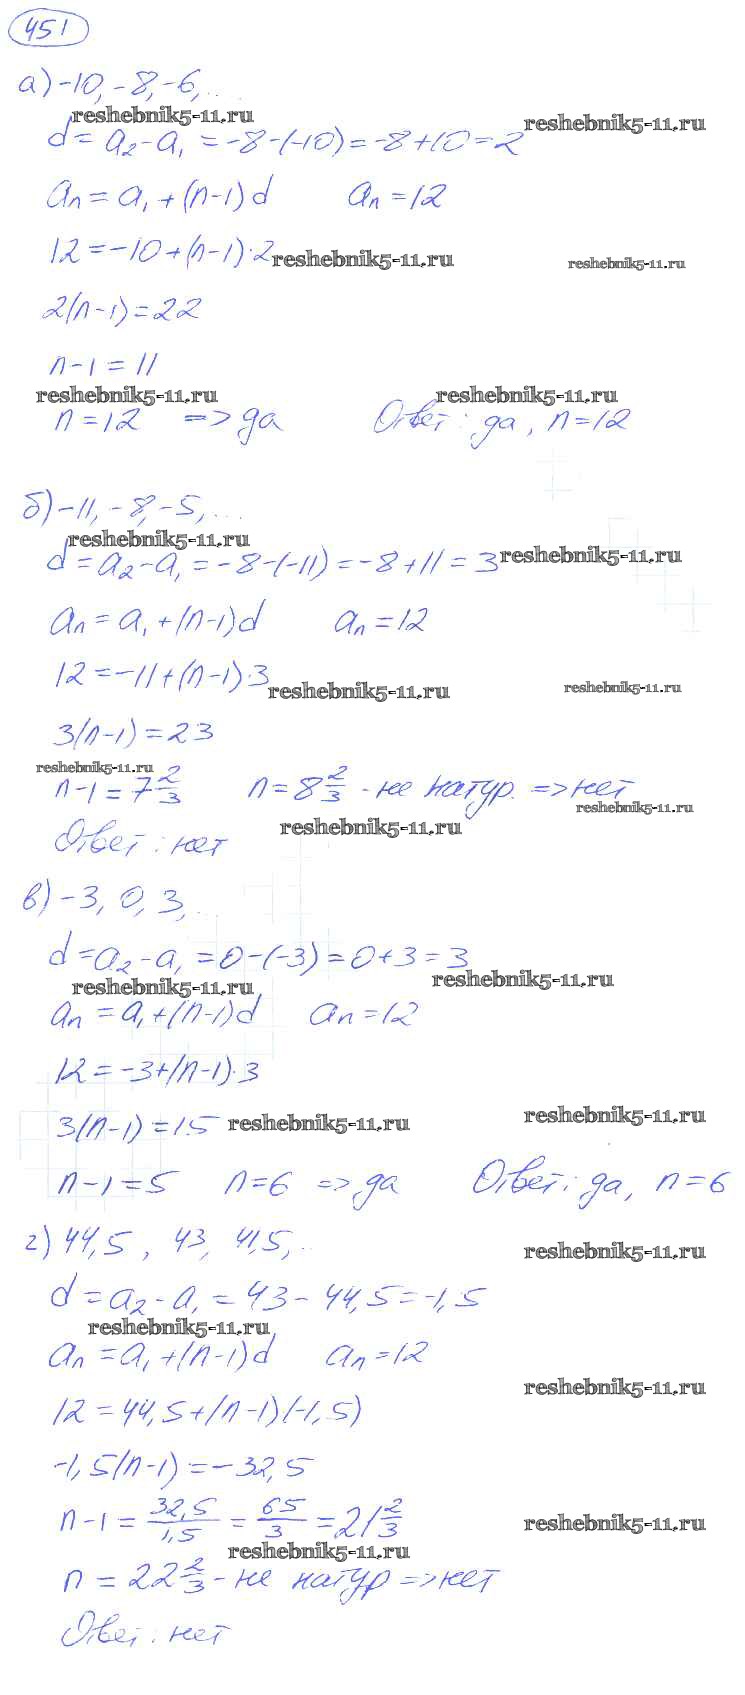 451
а) -10, -8, -6, ...
reshebnik5-11.ru
d = a₂ - a₁ = -8 - (-10) = -8 + 10 = 2
reshebnik5-11.ru
aₙ = a₁ + (n-1)d aₙ = 12
12 = -10 + (n-1)·2
reshebnik5-11.ru
reshebnik5-11.ru
2(n-1) = 22
n-1 = 11
reshebnik5-11.ru
reshebnik5-11.ru
n = 12 => да Ответ: да, n = 12
б) -11, -8, -5, ...
reshebnik5-11.ru
d = a₂ - a₁ = -8 - (-11) = -8 + 11 = 3
reshebnik5-11.ru
aₙ = a₁ + (n-1)d aₙ = 12
12 = -11 + (n-1)·3
reshebnik5-11.ru
reshebnik5-11.ru
3(n-1) = 23
reshebnik5-11.ru
n-1 = 7 2/3 n = 8 2/3 - не натур. => нет
reshebnik5-11.ru
reshebnik5-11.ru
Ответ: нет
в) -3, 0, 3, ...
d = a₂ - a₁ = 0 - (-3) = 0 + 3 = 3
reshebnik5-11.ru
reshebnik5-11.ru
aₙ = a₁ + (n-1)d aₙ = 12
12 = -3 + (n-1)·3
3(n-1) = 15
reshebnik5-11.ru
reshebnik5-11.ru
n-1 = 5 n = 6 => да Ответ: да, n = 6
г) 44,5, 43, 41,5, ...
reshebnik5-11.ru
d = a₂ - a₁ = 43 - 44,5 = -1,5
reshebnik5-11.ru
aₙ = a₁ + (n-1)d aₙ = 12
reshebnik5-11.ru
12 = 44,5 + (n-1)(-1,5)
-1,5(n-1) = -32,5
n-1 = 32,5/1,5 = 65/3 = 21 2/3
reshebnik5-11.ru
reshebnik5-11.ru
n = 22 2/3 - не натур => нет
Ответ: нет